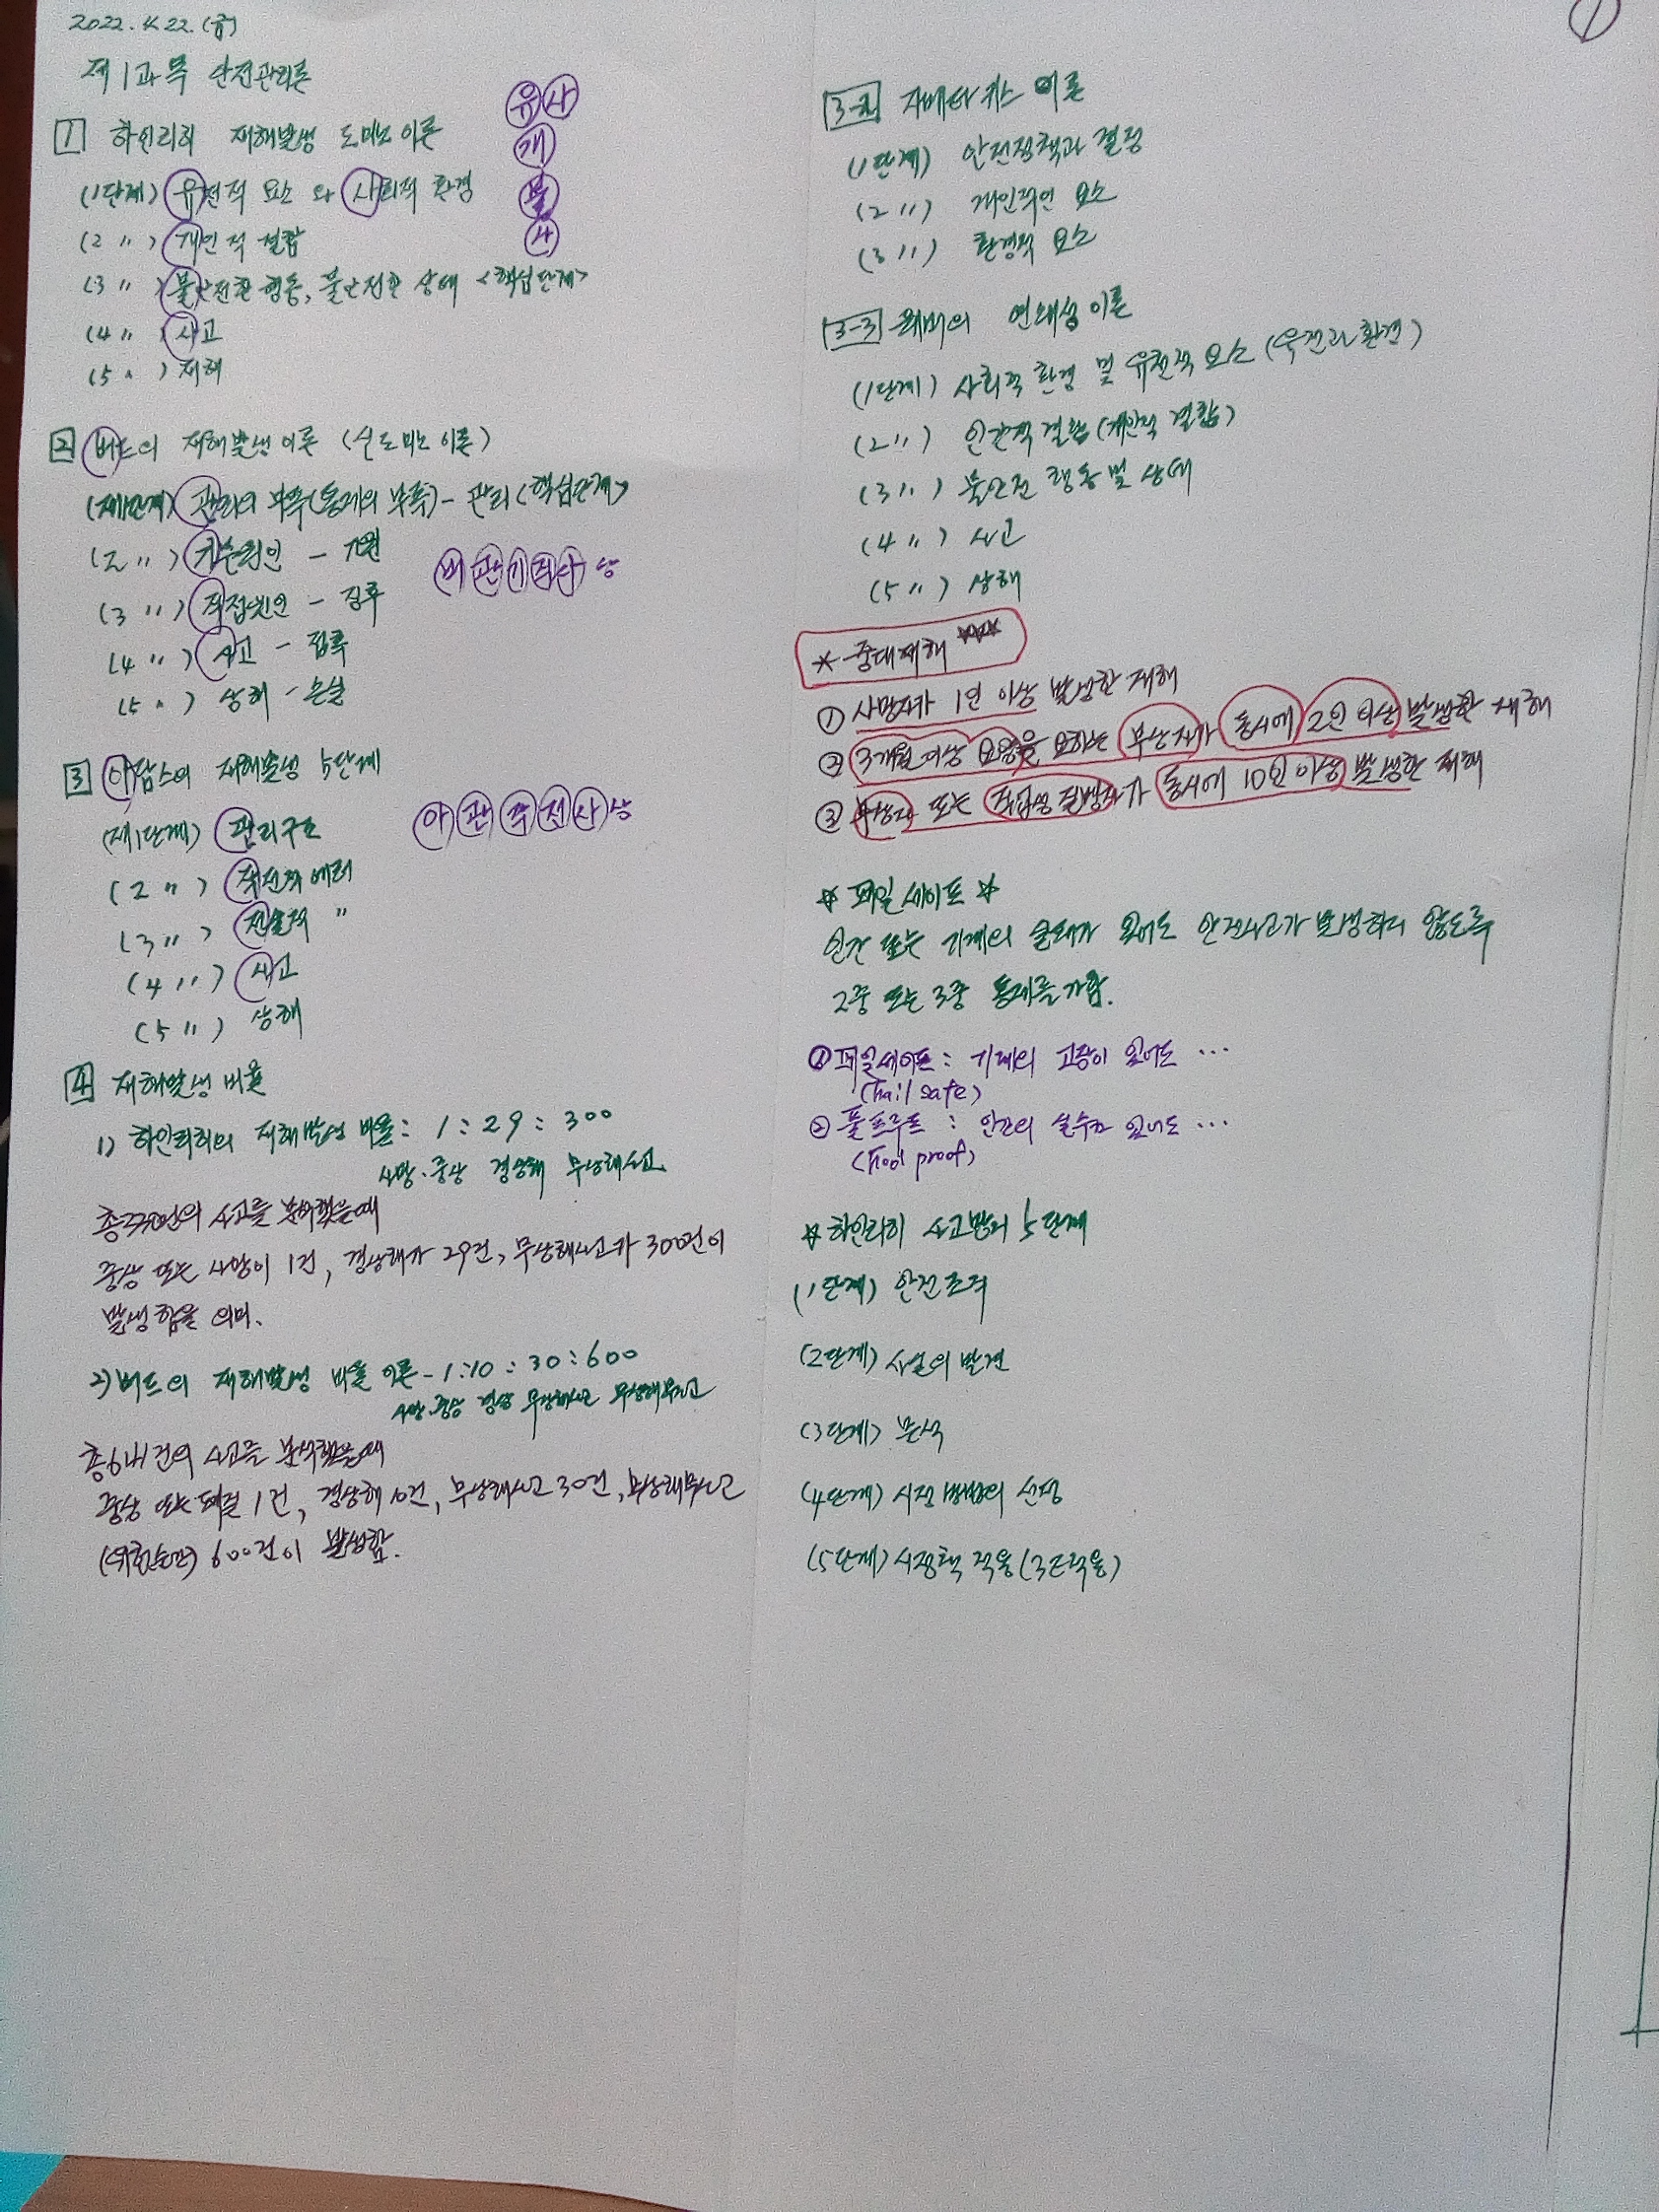 2022. 4. 22. (금)
제1과목 안전관리론
1 하인리히 재해발생 도미노이론
(1단계) 유전적 요소 와 사회적 환경
(2 〃) 개인적 결함
(3 〃) 불안전한 행동, 불안전한 상태 <핵심단계>
(4 〃) 사고
(5 〃) 재해
유사
개
불
사
2 버드의 재해발생이론 (신도미노 이론)
(제1단계) 관리의 부족(통제의 부족) - 관리 <핵심단계>
(2 〃) 기본원인 - 기원
(3 〃) 직접원인 - 징후
(4 〃) 사고 - 접촉
(5 〃) 상해 - 손실
버관기직사상
3 아담스의 재해발생 5단계
(제1단계) 관리구조
(2 〃) 작전적 에러
(3 〃) 전술적 〃
(4 〃) 사고
(5 〃) 상해
아관작전사상
4 재해발생 비율
1) 하인리히의 재해발생 비율 : 1 : 29 : 300
사망·중상 경상해 무상해사고
총330건의 사고를 분석했을때
중상 또는 사망이 1건, 경상해가 29건, 무상해사고가 300건이
발생함을 의미.
2) 버드의 재해발생 비율 이론 - 1:10 : 30 : 600
사망·중상 경상 무상해사고 무상해무사고
총641건의 사고를 분석했을때
중상 또는 폐질 1건, 경상해 10건, 무상해사고 30건, 무상해무사고
(위험순간) 600건이 발생함.
1
3-2 자베타키스 이론
(1단계) 안전정책과 결정
(2 〃) 개인적인 요소
(3 〃) 환경적 요소
3-3 웨버의 연쇄성 이론
(1단계) 사회적 환경 및 유전적 요소 (유전과 환경)
(2 〃) 인간적 결함 (개인적 결함)
(3 〃) 불안전 행동 및 상태
(4 〃) 사고
(5 〃) 상해
* 중대재해 ***
① 사망자가 1인 이상 발생한 재해
② 3개월 이상 요양을 요하는 부상자가 동시에 2인 이상 발생한 재해
③ 부상자 또는 직업성 질병자가 동시에 10인 이상 발생한 재해
☆ 페일세이프 ☆
인간 또는 기계의 실패가 있어도 안전사고가 발생하지 않도록
2중 또는 3중 통제를 가함.
① 페일세이프 : 기계의 고장이 있어도 ...
(Fail safe)
② 풀프루프 : 인간의 실수가 있어도 ...
(Fool proof)
☆ 하인리히 사고방지 5단계
(1단계) 안전조직
(2단계) 사실의 발견
(3단계) 분석
(4단계) 시정 방법의 선정
(5단계) 시정책 적용 (3E적용)